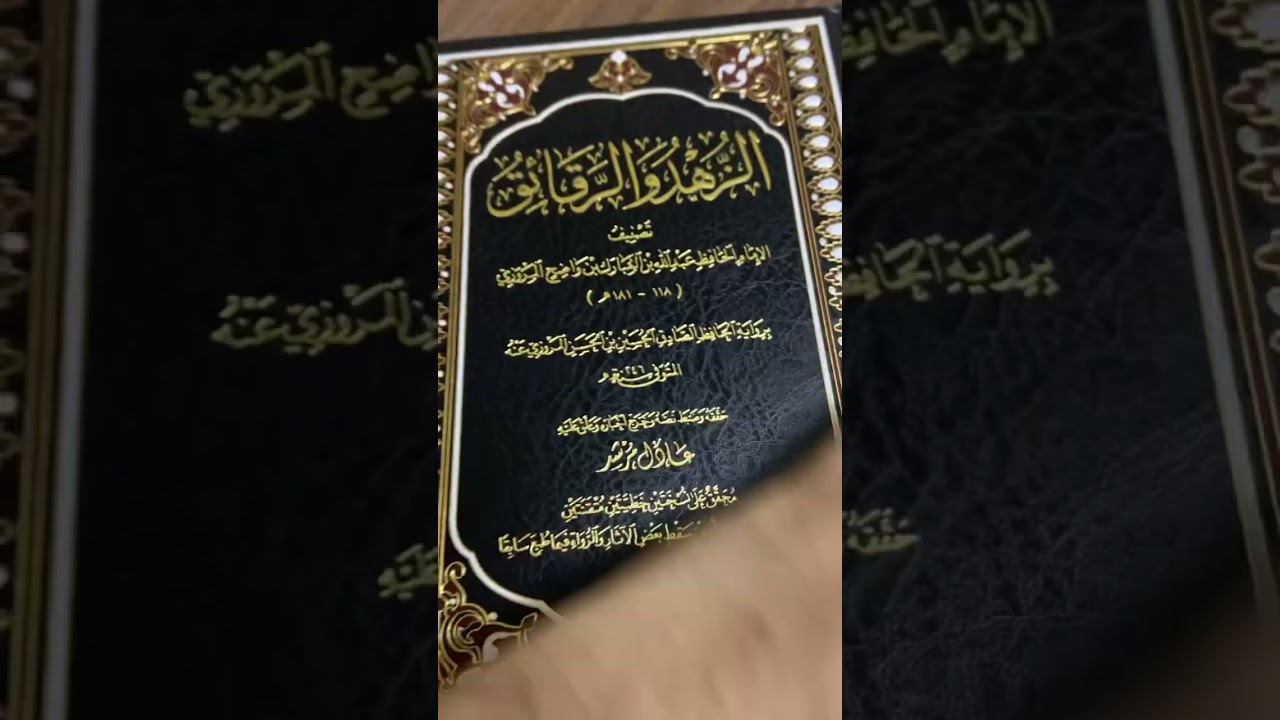 الزُّهْدُ وَالرَّقَائِقُ
تَصْنِيفُ
الإِمَامِ الْحَافِظِ عَبْدِ اللهِ بْنِ الْمُبَارَكِ بْنِ وَاضِحِ الْمَرْوَزِيِّ
( ١١٨ - ١٨١ هـ )
بِرِوَايَةِ الْحَافِظِ الصَّادِقِ الْحُسَيْنِ بْنِ الْحَسَنِ الْمَرْوَزِيِّ عَنْهُ
المُتَوَفَّى سنة ٢٤٦ هـ
حَقَّقَهُ وَضَبَطَ نَصَّهُ وَخَرَّجَ أَخْبَارَهُ وَعَلَّقَ عَلَيْهِ
عَادِل مُرْشِد
مُحَقَّقٌ عَلَى نُسْخَتَيْنِ خَطِّيَّتَيْنِ مُتْقَنَتَيْنِ
سَقَطَ بَعْضُ الْآثَارِ وَالرُّوَاةِ فِيمَا طُبِعَ سَابِقًا